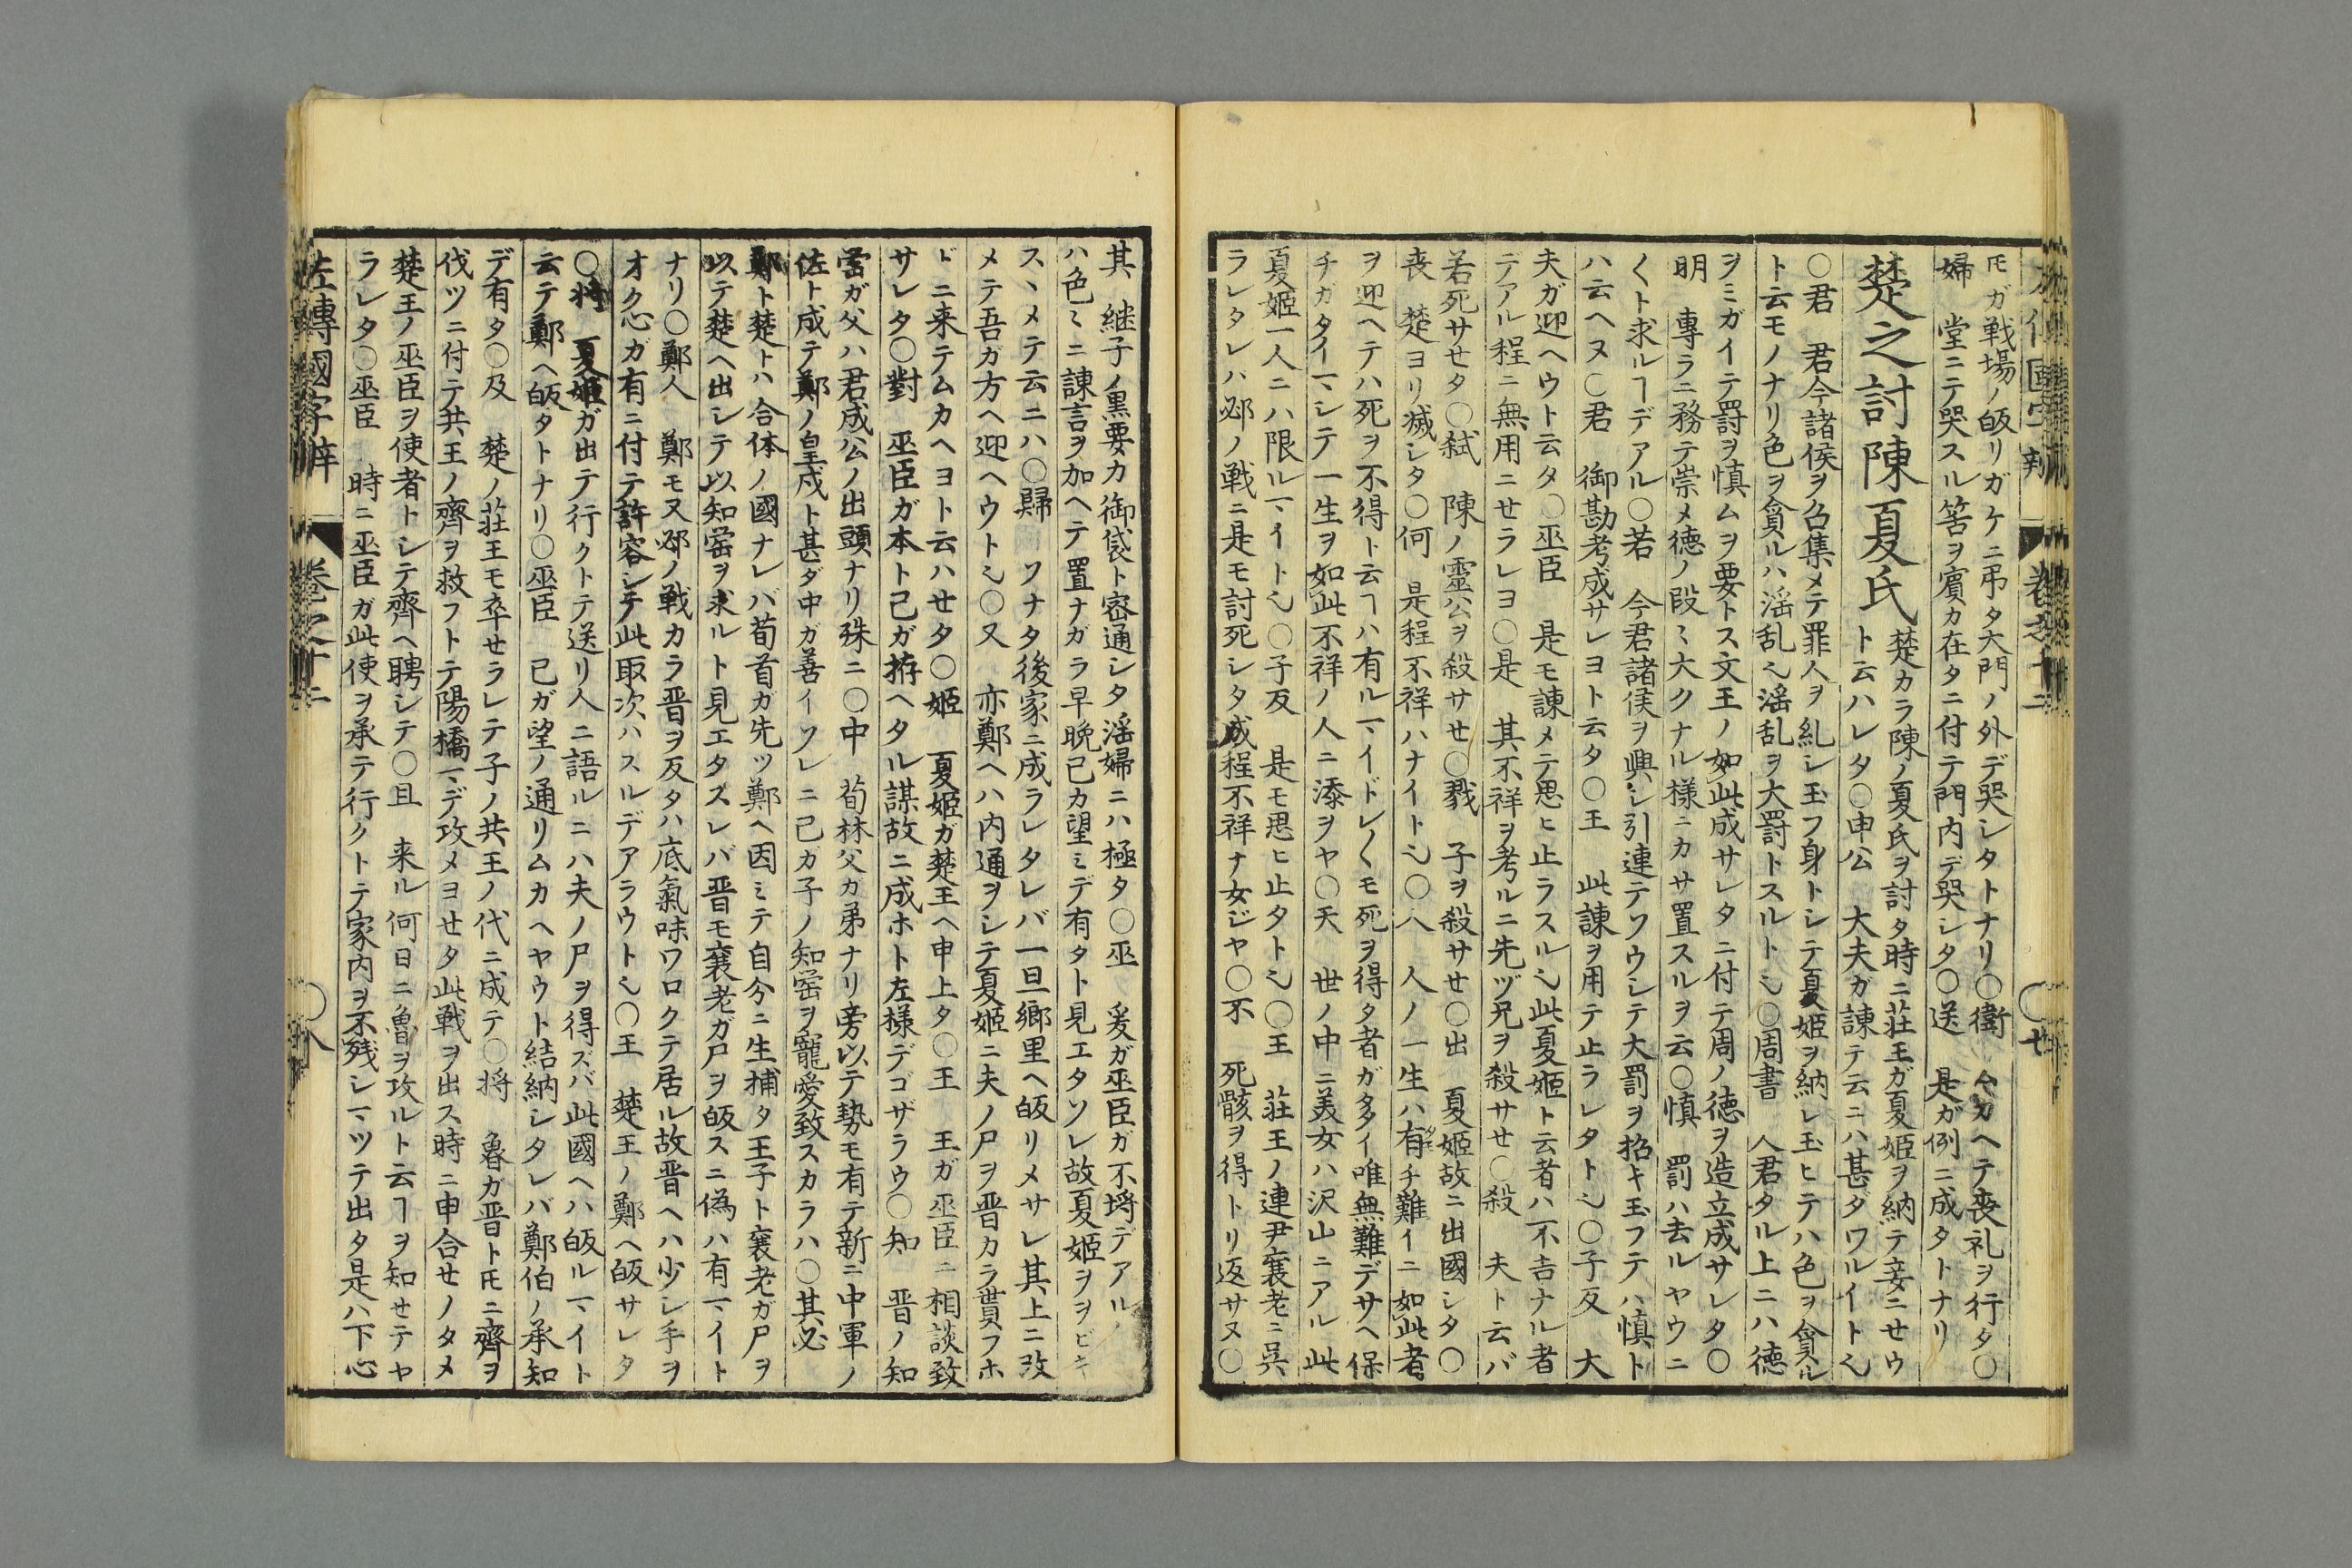 左傳國字辯 卷之十二
𪜈ガ戦場ノ皈リガケニ弔タ大門ノ外デ哭シタトナリ○衛 ムカヘテ喪礼ヲ行タ○
婦 堂ニテ哭スル筈ヲ賓カ在タニ付テ門内デ哭シタ○送 是ガ例ニ成タトナリ
楚之討陳夏氏 楚カラ陳ノ夏氏ヲ討タ時ニ荘王ガ夏姫ヲ納テ妾ニせウ
ト云ハレタ○申公 大夫ガ諌テ云ニハ甚ダワルイト也
○君 君今諸侯ヲ召集メテ罪人ヲ糺シ玉フ身トシテ夏姫ヲ納レ玉ヒテハ色ヲ貪ル
ト云モノナリ色ヲ貪ルハ滛乱也滛乱ヲ大罰トスルト也○周書 人君タル上ニハ徳
ヲミガイテ罰ヲ慎ムヲ要トス文王ノ如此成サレタニ付テ周ノ徳ヲ造立成サレタ○
明 專ラニ務テ崇メ徳ノ段〻大クナル様ニカサ置スルヲ云○慎 罰ハ去ルヤウニ
〱ト求ルヿデアル○若 今君諸侯ヲ興シ引連テソウシテ大罰ヲ招キ玉フテハ慎ト
ハ云ヘヌ○君 御勘考成サレヨト云タ○王 此諌ヲ用テ止ラレタト也○子反 大
夫ガ迎ヘウト云タ○巫臣 是モ諌メテ思ヒ止ラスル也此夏姫ト云者ハ不吉ナル者
テアル程ニ無用ニせラレヨ○是 其不祥ヲ考ルニ先ヅ兄ヲ殺サせ○殺 夫ト云バ
若死サせタ○弑 陳ノ霊公ヲ殺サせ○戮 子ヲ殺サせ○出 夏姫故ニ出國シタ○
喪 楚ヨリ滅シタ○何 是程不祥ハナイト也○人 人ノ一生ハ有チ難イニ如此者
ヲ迎ヘテハ死ヲ不得ト云ヿハ有ルマイドレ〱モ死ヲ得タ者ガ多イ唯無難デサヘ保
チガタイマヽシテ一生ヲ如此不祥ノ人ニ添ヲヤ○天 世ノ中ニ美女ハ沢山ニアル此
夏姫一人ニハ限ルマイト也○子反 是モ思ヒ止タト也○王 荘王ノ連尹襄老ニ呉
ラレタレハ邲ノ戦ニ是モ討死シタ成程不祥ナ女ジヤ○不 死骸ヲ得トリ返サヌ○
其 継子ノ黒要カ御袋ト密通シタ滛婦ニハ極タ○巫 爰ガ巫臣ガ不埒デアル
ハ色〻ニ諌言ヲ加ヘテ置ナガラ早晩己カ望ミデ有タト見エタソレ故夏姫ヲヲビキ
スヽメテ云ニハ○歸 ソナタ後家ニ成ラレタレバ一旦郷里ヘ皈リメサレ其上ニ改
メテ吾ガ方ヘ迎ヘウト也○又 亦鄭ヘハ内通ヲシテ夏姫ニ夫ノ尸ヲ晋カラ貰フホ
ドニ来テムカヘヨト云ハせタ○姫 夏姫ガ楚王ヘ申上タ○王 王ガ巫臣ニ相談致
サレタ○對 巫臣ガ本ト己ガ拵ヘタル謀故ニ成ホト左様デゴザラウ○知 晋ノ知
罃ガ父ハ君成公ノ出頭ナリ殊ニ○中 荀林父カ弟ナリ旁以テ勢モ有テ新ニ中軍ノ
佐ト成テ鄭ノ皇戍ト甚ダ中ガ善イソレニ己カ子ノ知罃ヲ寵愛致スカラハ○其必
鄭ト楚トハ合体ノ國ナレバ荀首ガ先ツ鄭ヘ因ミテ自分ニ生捕タ王子ト襄老ガ尸ヲ
以テ楚ヘ出シテ以知罃ヲ求ルト見エタスレバ晋モ襄老ガ尸ヲ皈スニ偽ハ有マイト
ナリ○鄭人 鄭モ又邲ノ戦カラ晋ヲ反タハ底氣味ワロクテ居ル故晋ヘハ少シ手ヲ
オク心ガ有ニ付テ許容シテ此取次ハスルデアラウト也○王 楚王ノ鄭ヘ皈サレタ
○将 夏姫ガ出テ行クトテ送リ人ニ語ルニハ夫ノ尸ヲ得ズバ此國ヘハ皈ルマイト
云テ鄭ヘ皈タトナリ○巫臣 己ガ望ノ通リムカヘヤウト結納シタレバ鄭伯ノ承知
デ有タ○及 楚ノ荘王モ卒せラレテ子ノ共王ノ代ニ成テ○将 魯ガ晋ト𪜈ニ齊ヲ
伐ツニ付テ共王ノ齊ヲ救フトテ陽橋マデ攻メヨせタ此戦ヲ出ス時ニ申合せノタメ
楚王ノ巫臣ヲ使者トシテ齊ヘ聘シテ○且 来ル何日ニ魯ヲ攻ルト云ヿヲ知せテヤ
ラレタ○巫臣 時ニ巫臣ガ此使ヲ承テ行クトテ家内ヲ不残シマツテ出タ是ハ下心
左傳國字辯 卷之十二 ○八